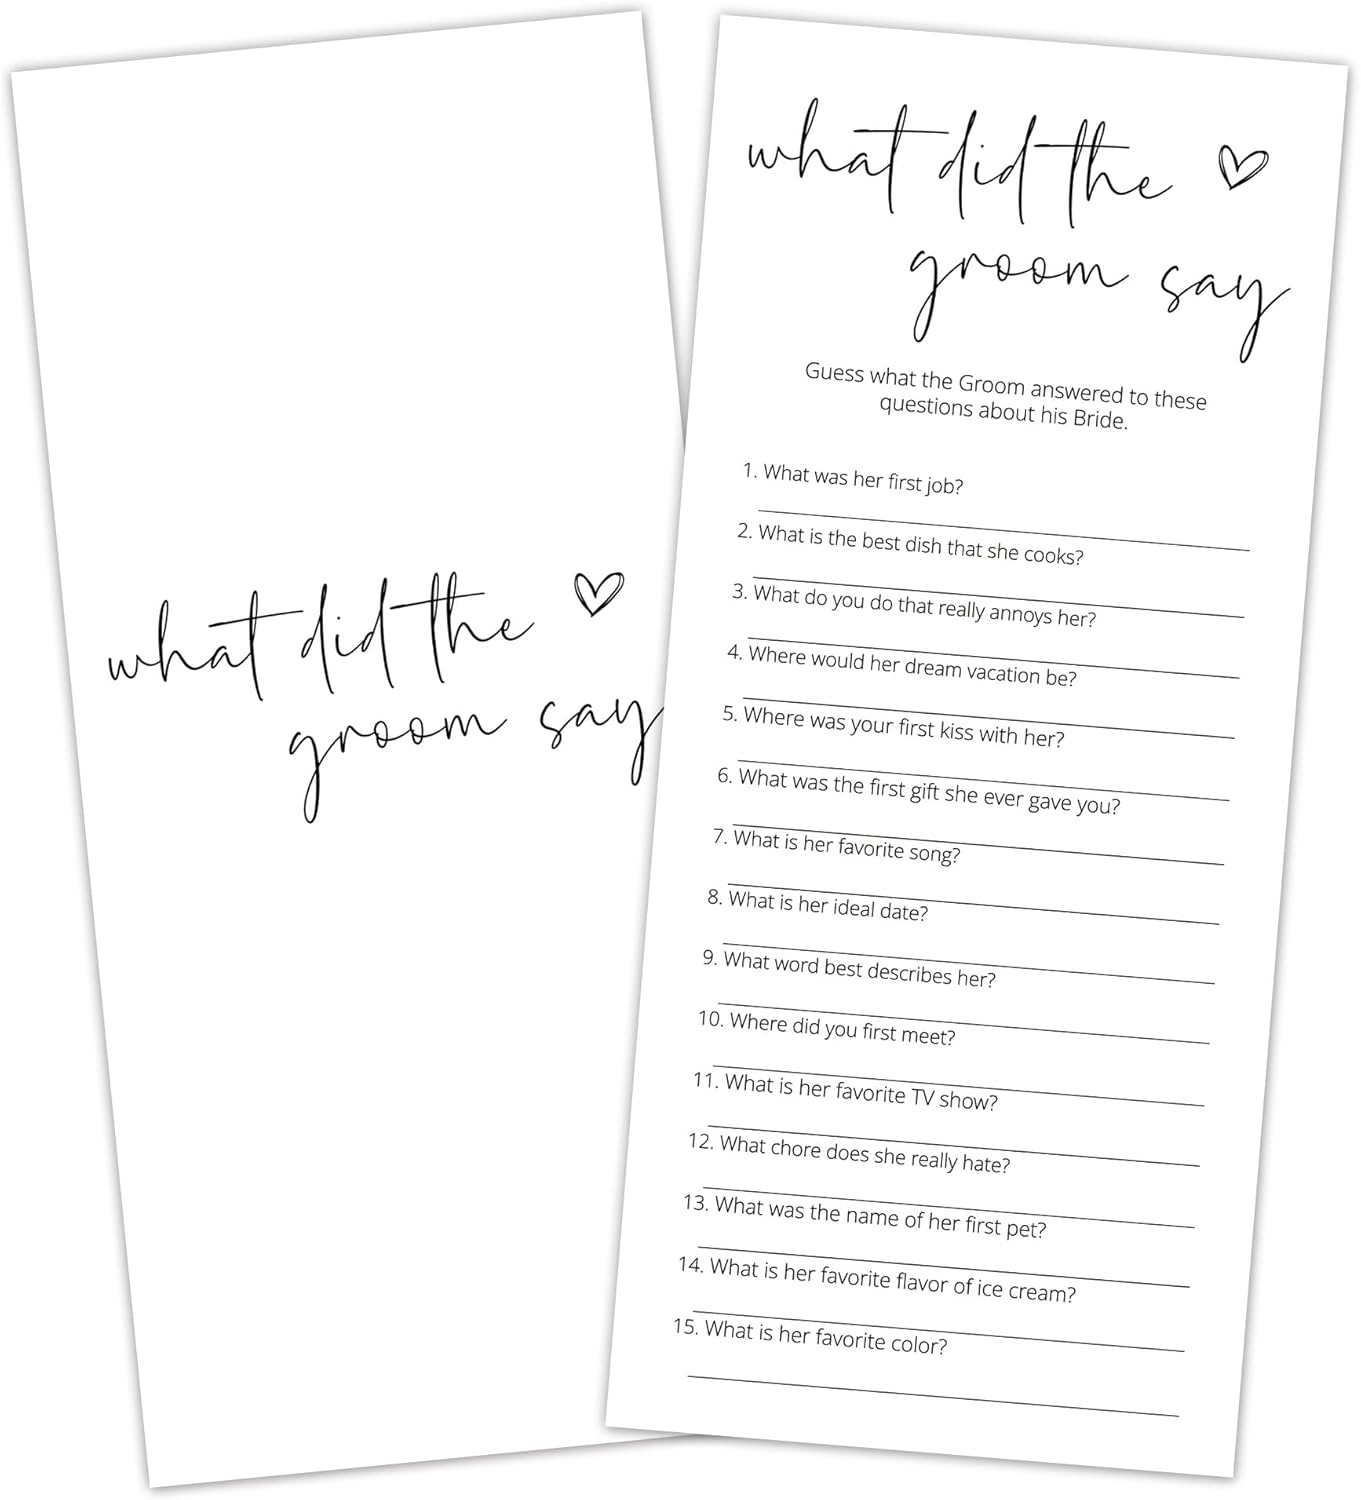 what did the
groom say
what did the
groom say
Guess what the Groom answered to these
questions about his Bride.
1. What was her first job?
2. What is the best dish that she cooks?
3. What do you do that really annoys her?
4. Where would her dream vacation be?
5. Where was your first kiss with her?
6. What was the first gift she ever gave you?
7. What is her favorite song?
8. What is her ideal date?
9. What word best describes her?
10. Where did you first meet?
11. What is her favorite TV show?
12. What chore does she really hate?
13. What was the name of her first pet?
14. What is her favorite flavor of ice cream?
15. What is her favorite color?